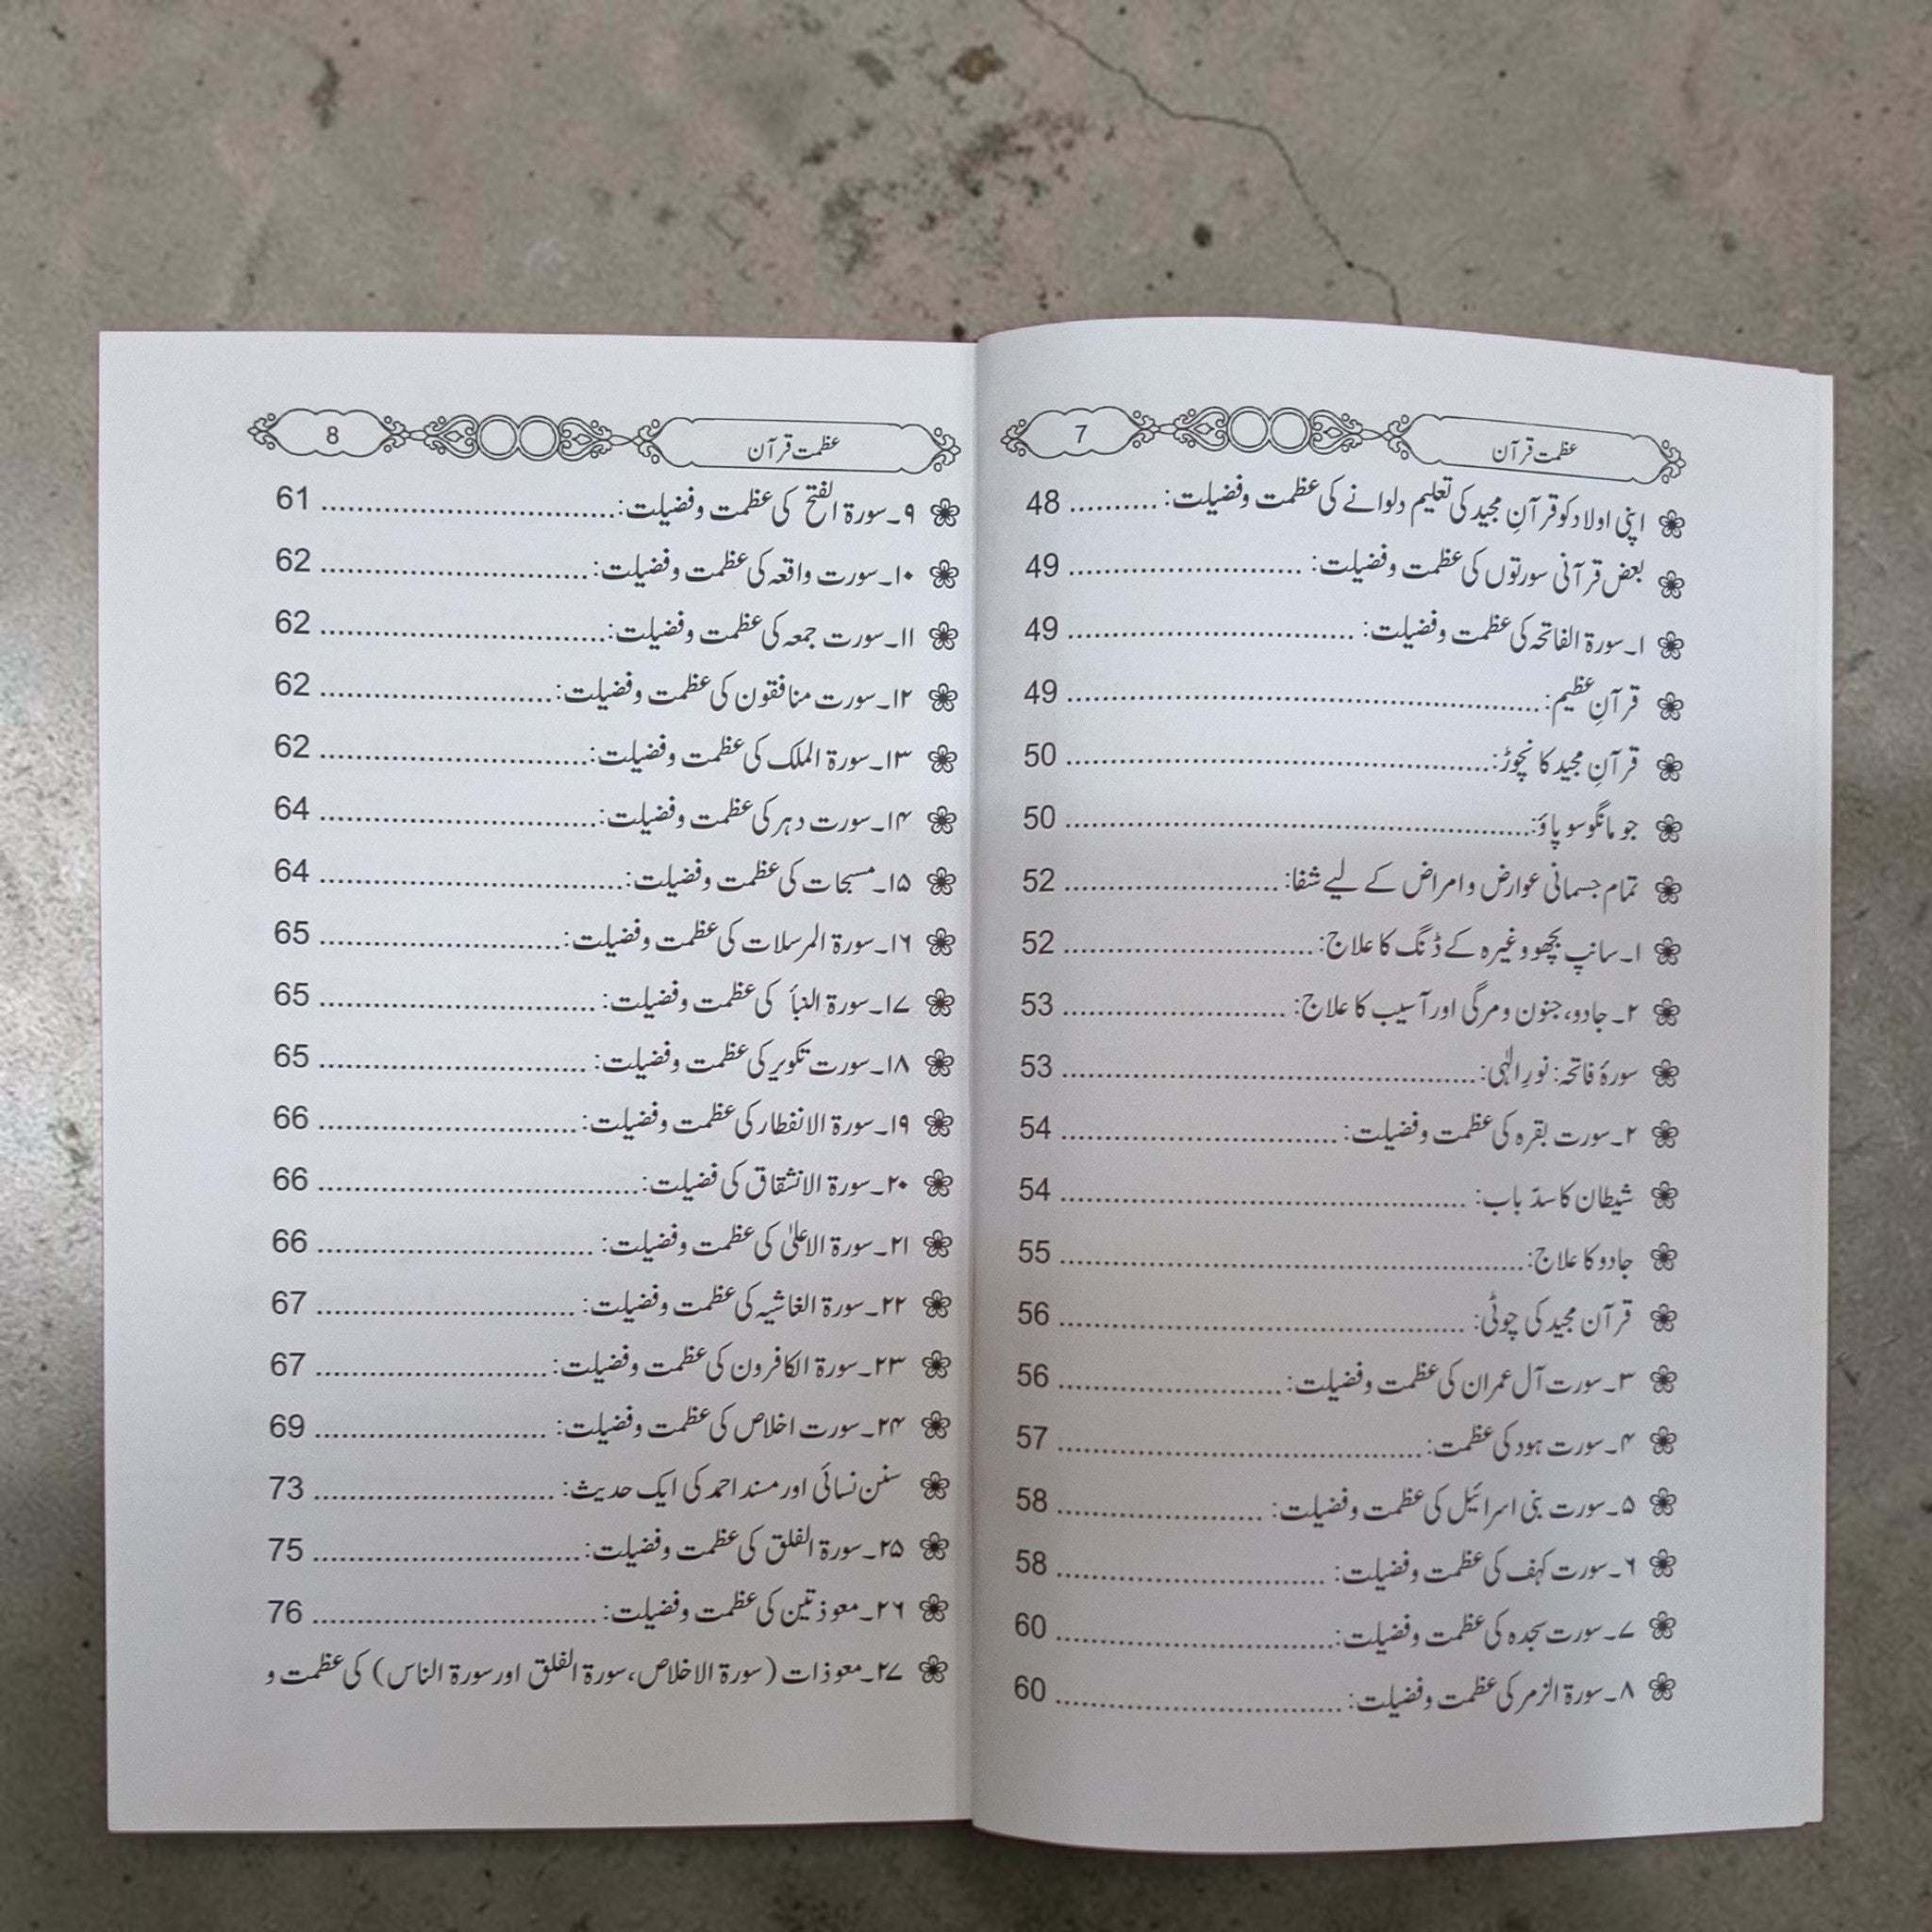 عظمت قرآن 7
اپنی اولاد کو قرآنِ مجید کی تعلیم دلوانے کی عظمت و فضیلت: .......... 48
بعض قرآنی سورتوں کی عظمت و فضیلت: .......................... 49
۱۔سورۃ الفاتحہ کی عظمت و فضیلت: ................................ 49
قرآنِ عظیم: ..................................................... 49
قرآنِ مجید کا نچوڑ: ................................................ 50
جو مانگو سو پاؤ: .................................................... 50
تمام جسمانی عوارض و امراض کے لیے شفا: ........................ 52
۱۔سانپ بچھو وغیرہ کے ڈنگ کا علاج: ............................ 52
۲۔جادو، جنون و مرگی اور آسیب کا علاج: ......................... 53
سورۂ فاتحہ: نورِ الٰہی: ............................................... 53
۲۔سورت بقرہ کی عظمت و فضیلت: ............................... 54
شیطان کا سدّ باب: .............................................. 54
جادو کا علاج: .................................................... 55
قرآن مجید کی چوٹی: .............................................. 56
۳۔سورت آل عمران کی عظمت و فضیلت: ......................... 56
۴۔سورت ہود کی عظمت: ......................................... 57
۵۔سورت بنی اسرائیل کی عظمت و فضیلت: ....................... 58
۶۔سورت کہف کی عظمت و فضیلت: .............................. 58
۷۔سورت سجدہ کی عظمت و فضیلت: ............................... 60
۸۔سورۃ الزمر کی عظمت و فضیلت: ................................ 60
عظمت قرآن 8
۹۔سورۃ الفتح کی عظمت و فضیلت: ................................. 61
۱۰۔سورت واقعہ کی عظمت و فضیلت: .............................. 62
۱۱۔سورت جمعہ کی عظمت و فضیلت: ................................ 62
۱۲۔سورت منافقون کی عظمت و فضیلت: .......................... 62
۱۳۔سورۃ الملک کی عظمت و فضیلت: .............................. 62
۱۴۔سورت دہر کی عظمت و فضیلت: ............................... 64
۱۵۔مسبحات کی عظمت و فضیلت: .................................. 64
۱۶۔سورۃ المرسلات کی عظمت و فضیلت: ........................... 65
۱۷۔سورۃ النبأ کی عظمت و فضیلت: ............................... 65
۱۸۔سورت تکویر کی عظمت و فضیلت: .............................. 65
۱۹۔سورۃ الانفطار کی عظمت و فضیلت: ............................. 66
۲۰۔سورۃ الانشقاق کی فضیلت: .................................... 66
۲۱۔سورۃ الاعلیٰ کی عظمت و فضیلت: ............................... 66
۲۲۔سورۃ الغاشیہ کی عظمت و فضیلت: ............................. 67
۲۳۔سورۃ الکافرون کی عظمت و فضیلت: .......................... 67
۲۴۔سورت اخلاص کی عظمت و فضیلت: .......................... 69
سنن نسائی اور مسند احمد کی ایک حدیث: ........................... 73
۲۵۔سورۃ الفلق کی عظمت و فضیلت: .............................. 75
۲۶۔معوذتین کی عظمت و فضیلت: ................................ 76
۲۷۔معوذات (سورۃ الاخلاص، سورۃ الفلق اور سورۃ الناس) کی عظمت و